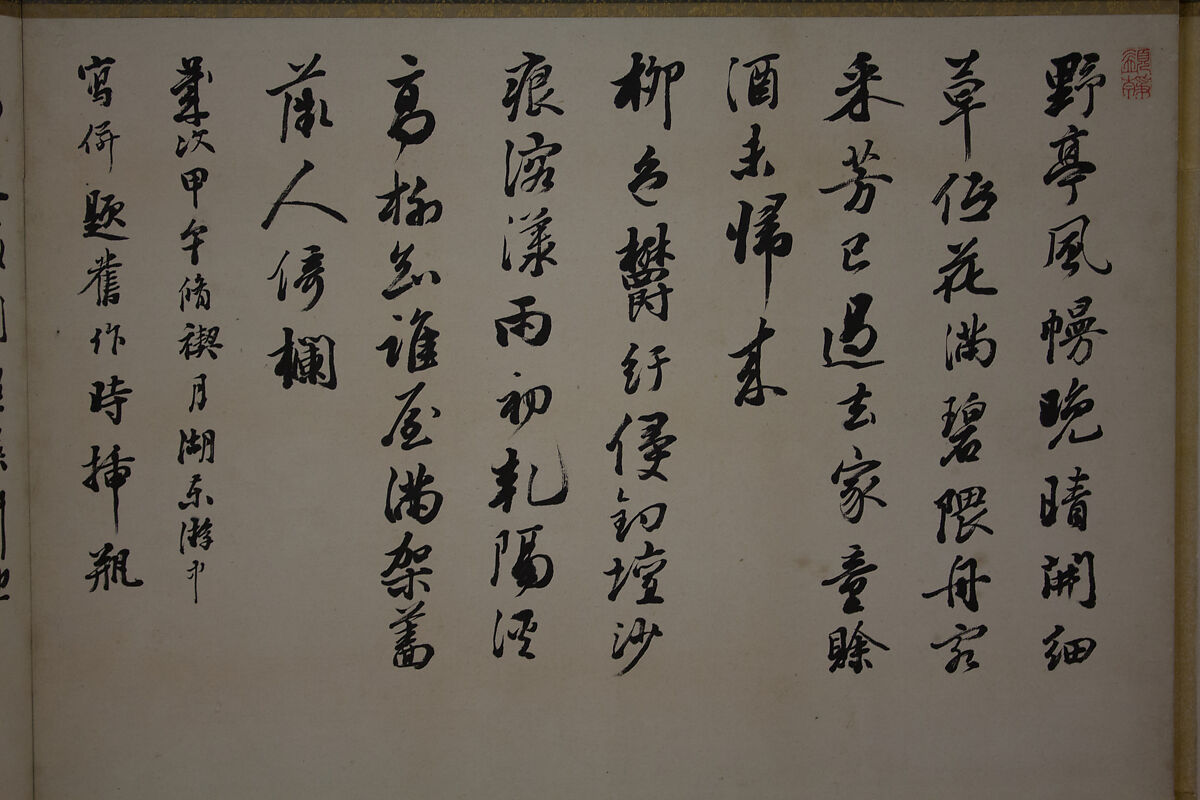 野亭風幔晚晴開細
草低花滿碧隈舟客
采芳已過去家童賒
酒未歸來
柳色鬱紆侵釣壇沙
痕溶漾雨初乾隔涇
高柳知誰屋滿架薔
薇人倚欄
歲次甲午脩禊月湖游中
寫併題舊作時插瓶